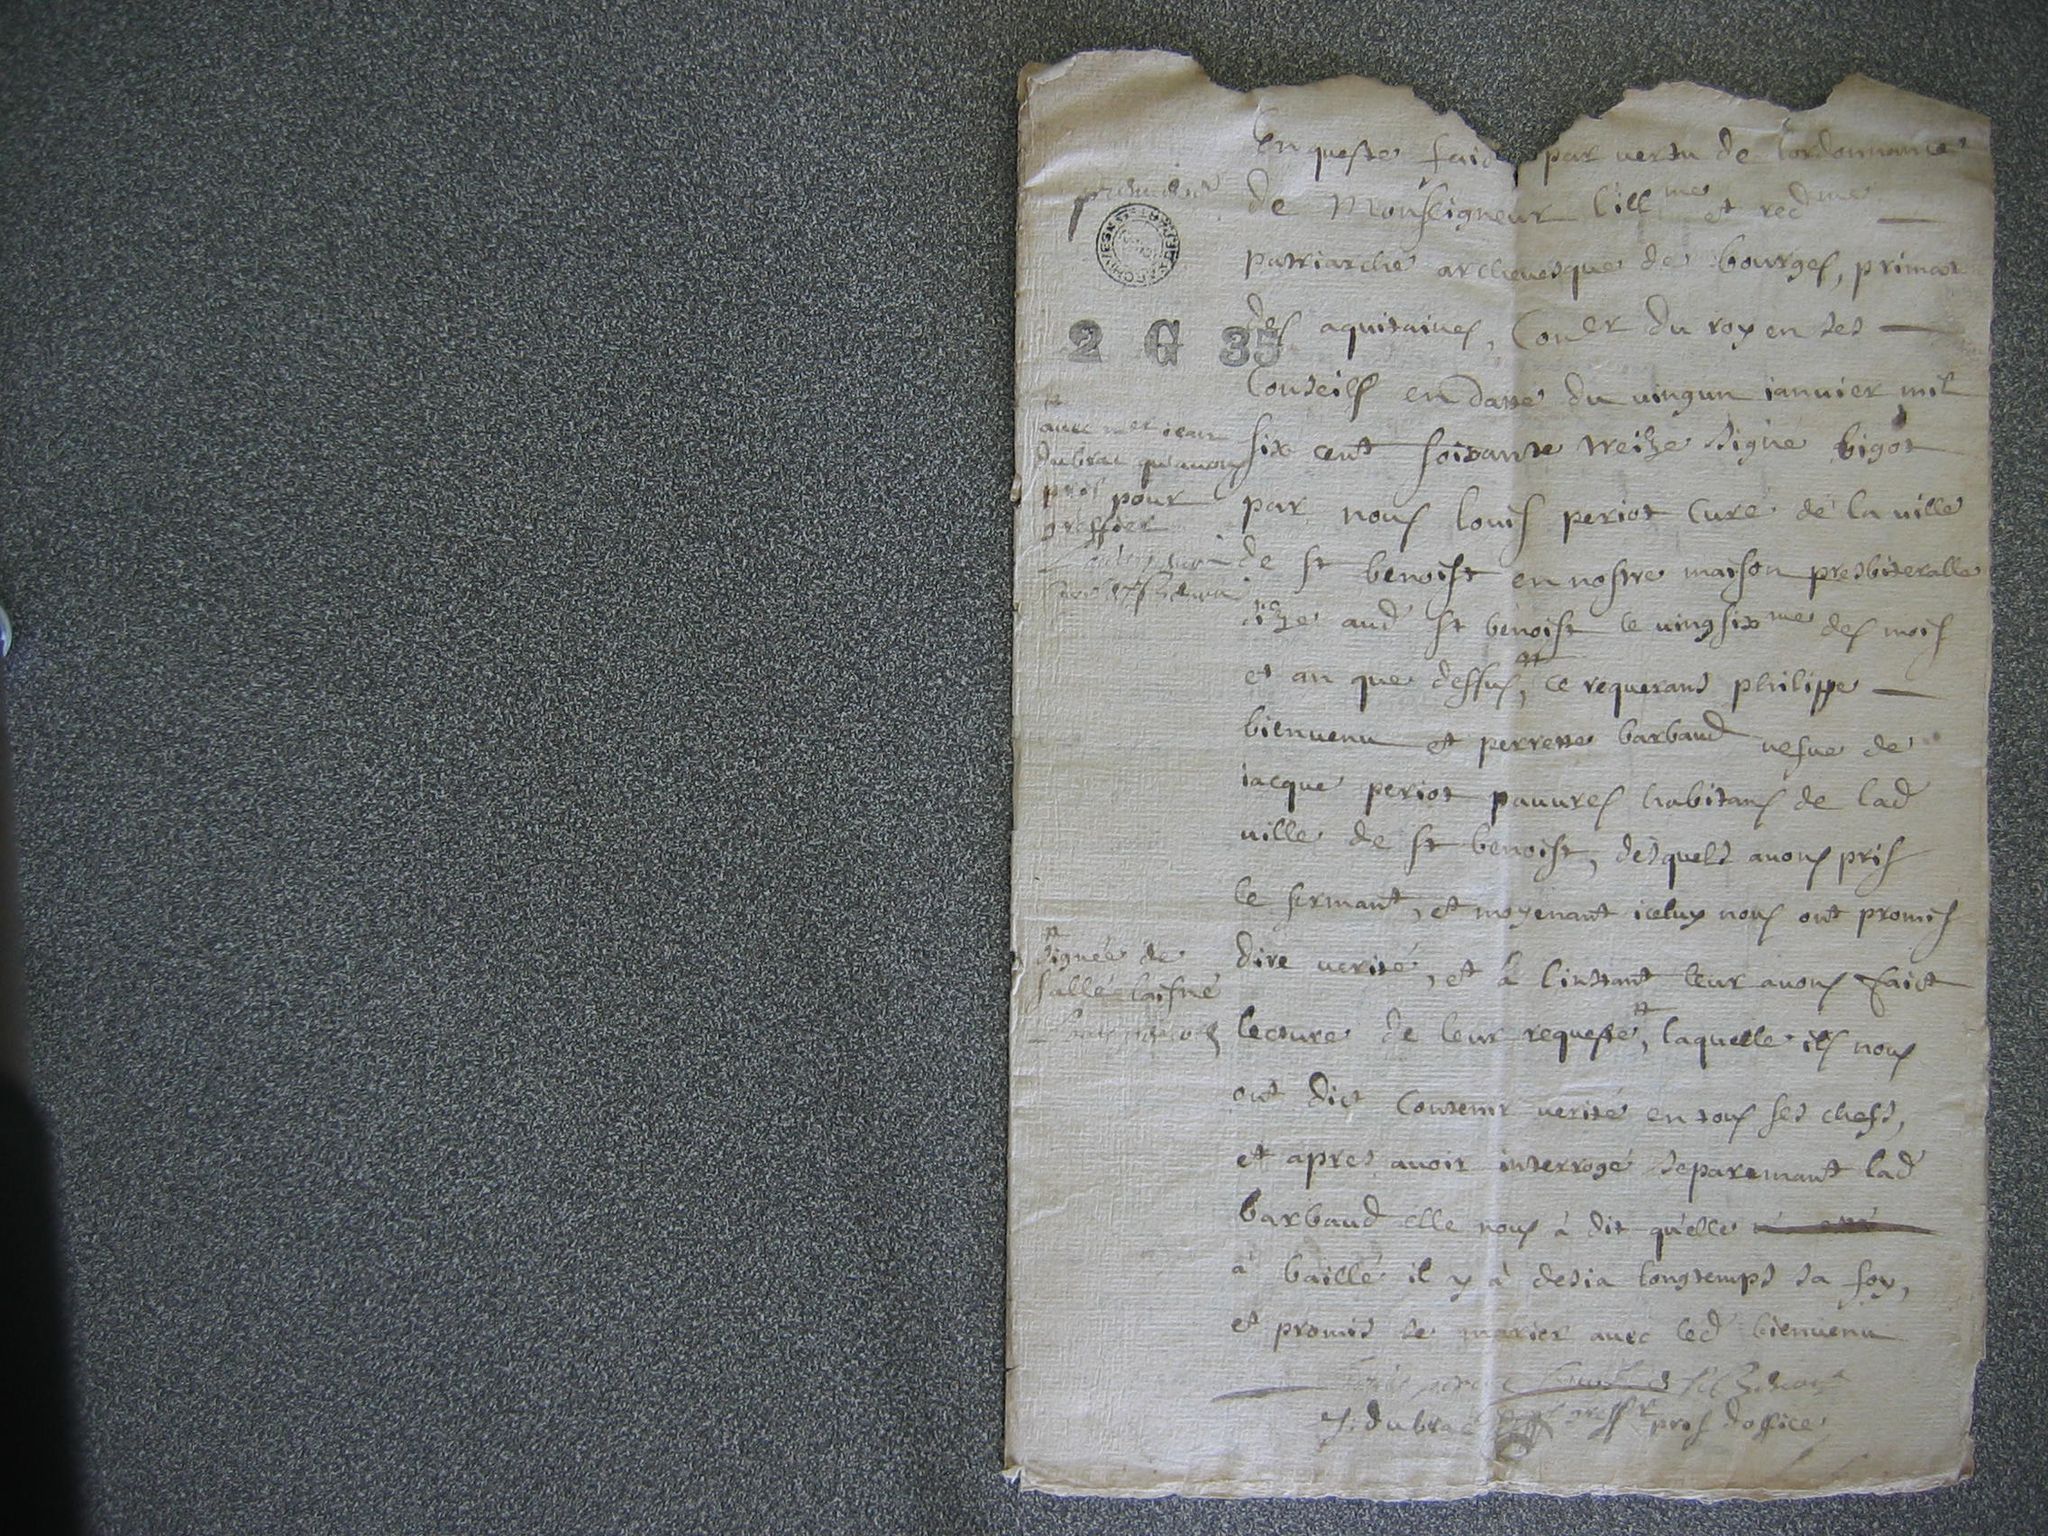 Enqueste faicte par vertu de lordonnance
de Monseigneur l'ill^me et red^me
patriarche archevesque de bourges, primat
des aquitaines, Con^er du roy en ses
2 G 35
Conseils en datte du vingun ianvier mil
six cent soixante treitze signé bigot
par nous louis periot Curé de la ville
de st benoist en nostre maison presbiteralle
sitze aud st benoist le vingsix^me des mois
et an que dessus, ce requerans philippe
avec m^e iean
dubrac qu'avons
pris pour
greffier
bienvenu et perrette barbaud vefve de
iacque periot pauvres habitans de lad
ville de st benoist, desquels avons pris
le sermant, et moyenant iceluy nous ont promis
dire verité, et à l'instant leur avons faict
lecture de leur requeste, laquelle ils nous
signée de
sallé laisné
ont dict Contenir verité en tous ses chefs,
et apres avoir interrogé separemant lad
barbaud elle nous à dit qu'elle
à baillé il y à desia longtemps sa foy,
et promis se marier avec led bienvenu
J. dubrac greff^r pris doffice